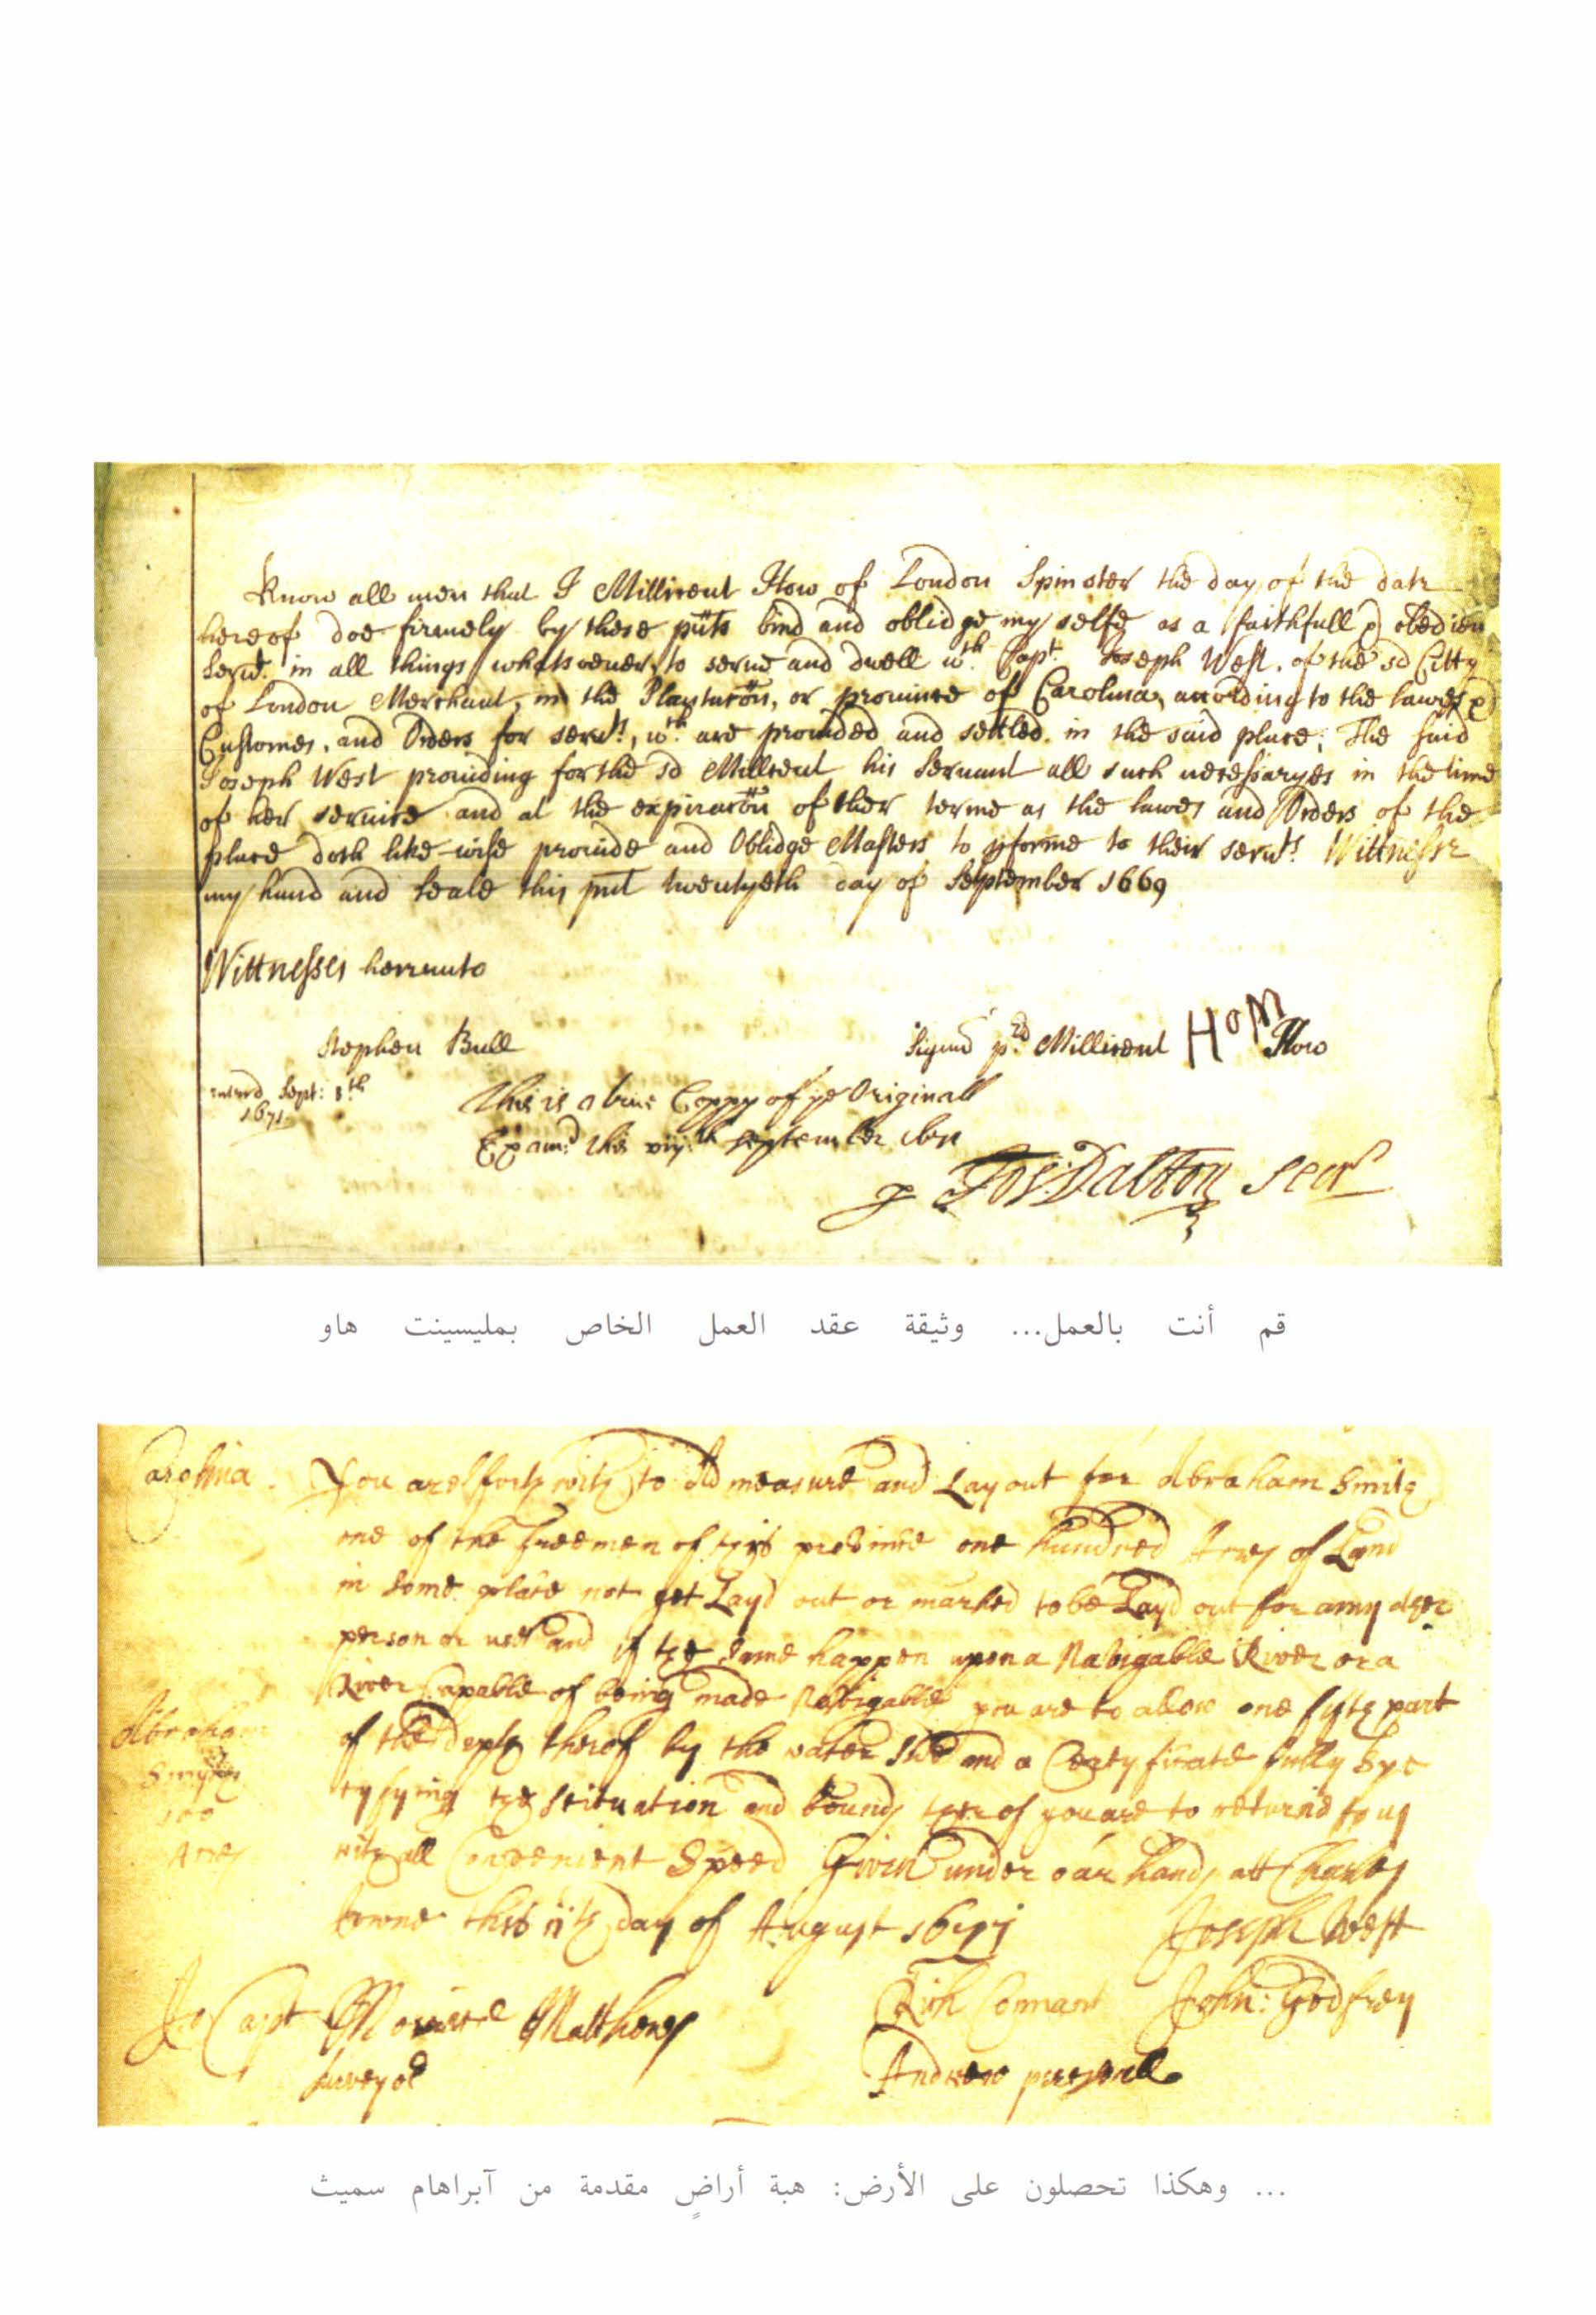 Know all men that I Millicent How of London Spinster the day of the date
hereof doe firmely by these pnts bind and oblidge my selfe as a faithfull & obedien
Servt. in all things whatsoever, to serve and dwell wth. Capt. Joseph West. of the sd Citty
of London Merchant, in the Plantacon, or province of Carolina, according to the lawes &
Customes, and Orders for servts, wch. are provided and settled in the said place; The said
Joseph West providing for the sd Millicent his servant all such necessaryes in the time
of her service and at the expiracon of ther terme as the lawes and Orders of the
place doth like-wise provide and Oblidge Masters to pforme to their servts. Wittnesse
my hand and seale this pnt twentyeth day of September 1669
Wittnesses hereunto
Stephen Bull
Signum pd. Millicent HoM How
Sept: 8th
1671
This is a true Coppy of ye Originall
Examd. this viijth September 1671
p Jos: Dalton Secr
قم أنت بالعمل... وثيقة عقد العمل الخاص بمليسينت هاو
Carolina. You are forthwith to measure and Lay out for Abraham Smith
one of the Freemen of this province one hundred Acres of Land
in some place not yet Layd out or marked to be Layd out for any other
person or use and if the same happen upon a Navigable River or a
River Capable of being made Navigable you are to allow one fifth part
of the depth therof by the water side and a Certyficate fully Spe
cyfying the scituation and bounds therof you are to returne to us
with all Convenient Speed Given under our hands att Charles
towne this day of August 1671
Abraham
Smith
100
Acres
Joseph West
John: Godfrey
To Capt Matthews
Surveyor
Rich Connant
Andrew
... وهكذا تحصلون على الأرض: هبة أراضٍ مقدمة من آبراهام سميث